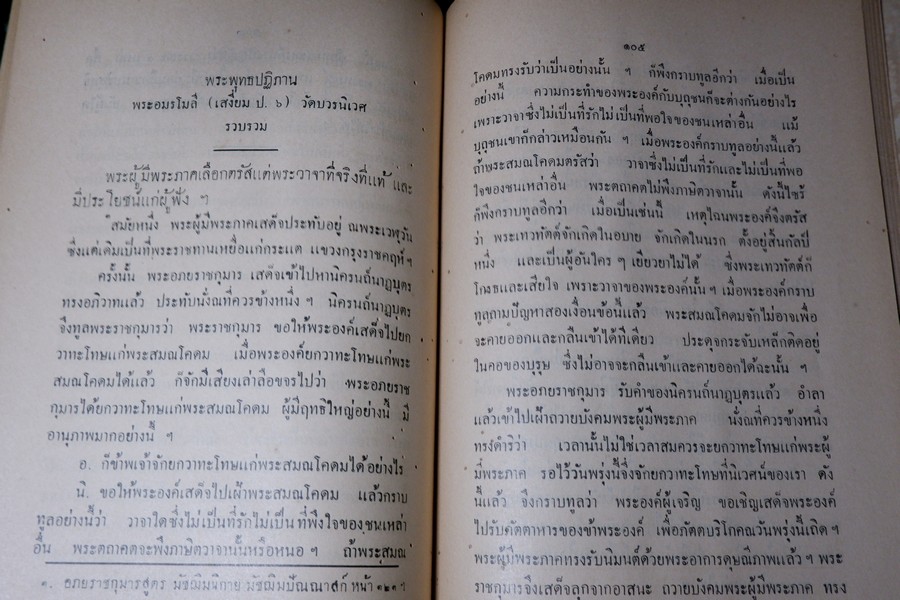 พระพุทธปฏิภาน
พระอมรโมลี (เสงี่ยม ป. ๖) วัดบวรนิเวศ
รวบรวม
พระผู้มีพระภาคเลือกตรัสแต่พระวาจาที่จริงที่แท้ และ
มีประโยชน์แก่ผู้ฟัง ฯ
สมัยหนึ่ง พระผู้มีพระภาคเสด็จประทับอยู่ ณพระเวฬุวัน
ซึ่งแต่เดิมเป็นที่พระราชทานเหยื่อแก่กระแต แขวงกรุงราชคฤห์ ฯ
ครั้งนั้น พระอภัยราชกุมาร เสด็จเข้าไปหานิครนถ์นาฏบุตร
ทรงอภิวาทแล้ว ประทับนั่งณที่ควรข้างหนึ่ง ฯ นิครนถ์นาฏบุตร
จึงทูลพระราชกุมารว่า พระราชกุมาร ขอให้พระองค์เสด็จไปยก
วาทะโทษแก่พระสมณโคดม เมื่อพระองค์ยกวาทะโทษแก่พระ
สมณโคดมได้แล้ว ก็จักมีเสียงเล่าลือขจรไปว่า พระอภยราช
กุมารได้ยกวาทะโทษแก่พระสมณโคดม ผู้มีฤทธิใหญ่อย่างนี้ มี
อานุภาพมากอย่างนี้ ฯ
อ. ก็ข้าพเจ้าจักยกวาทะโทษแก่พระสมณโคดมได้อย่างไร
นิ. ขอให้พระองค์เสด็จไปเฝ้าพระสมณโคดม แล้วกราบ
ทูลอย่างนี้ว่า วาจาใดซึ่งไม่เป็นที่รักไม่เป็นที่พึงใจของชนเหล่า
อื่น พระตถาคตจะพึงภาษิตวาจานั้นหรือหนอ ฯ ถ้าพระสมณ
๑. อภยราชกุมารสูตร มัชฌิมนิกาย มัชฌิมปัณณาสก์ หน้า ๑๒๑ ฯ
๑๐๕
โคดมทรงรับว่าเป็นอย่างนั้น ฯ ก็พึงกราบทูลอีกว่า เมื่อเป็น
อย่างนี้ ความกระทำของพระองค์กับบุถุชนก็จะต่างกันอย่างไร
เพราะวาจาซึ่งไม่เป็นที่รักไม่เป็นที่พอใจของชนเหล่าอื่น แม้
บุถุชนเขาก็กล่าวเหมือนกัน ฯ เมื่อพระองค์กราบทูลอย่างนี้แล้ว
ถ้าพระสมณโคดมตรัสว่า วาจาซึ่งไม่เป็นที่รักและไม่เป็นที่พอ
ใจของชนเหล่าอื่น พระตถาคตไม่พึงภาษิตวาจานั้น ดังนี้ไซร้
ก็พึงกราบทูลอีกว่า เมื่อเป็นเช่นนี้ เหตุไฉนพระองค์จึงตรัส
ว่า พระเทวทัตต์จักเกิดในอบาย จักเกิดในนรก ตั้งอยู่สิ้นกัลป์
หนึ่ง และเป็นผู้อันใคร ๆ เยียวยาไม่ได้ ซึ่งพระเทวทัตต์ก็
โกรธและเสียใจ เพราะวาจาของพระองค์นั้น ฯ เมื่อพระองค์กราบ
ทูลถามปัญหาสองเงื่อนข้อนี้แล้ว พระสมณโคดมจักไม่อาจเพื่อ
จะคายออกและกลืนเข้าได้ทีเดียว ประดุจกระจับเหล็กติดอยู่
ในคอของบุรุษ ซึ่งไม่อาจจะกลืนเข้าและคายออกได้ฉะนั้น ฯ
พระอภยราชกุมาร รับคำของนิครนถ์นาฏบุตรแล้ว อำลา
แล้วเข้าไปเฝ้าถวายบังคมพระผู้มีพระภาค นั่งณที่ควรข้างหนึ่ง
ทรงดำริว่า เวลานั้นไม่ใช่เวลาสมควรจะยกวาทะโทษแก่พระผู้
มีพระภาค รอไว้วันพรุ่งนี้จึงจักยกวาทะโทษที่นิเวศน์ของเรา ดัง
นี้แล้ว จึงกราบทูลว่า พระองค์ผู้เจริญ ขอเชิญเสด็จพระองค์
ไปรับภัตตาหารของข้าพระองค์ เพื่อภัตตบริโภคณวันพรุ่งนี้เถิด ฯ
พระผู้มีพระภาคทรงรับนิมนต์ด้วยพระอาการดุษณีภาพแล้ว ฯ พระ
ราชกุมารจึงเสด็จลุกจากอาสนะ ถวายบังคมพระผู้มีพระภาค ทรง